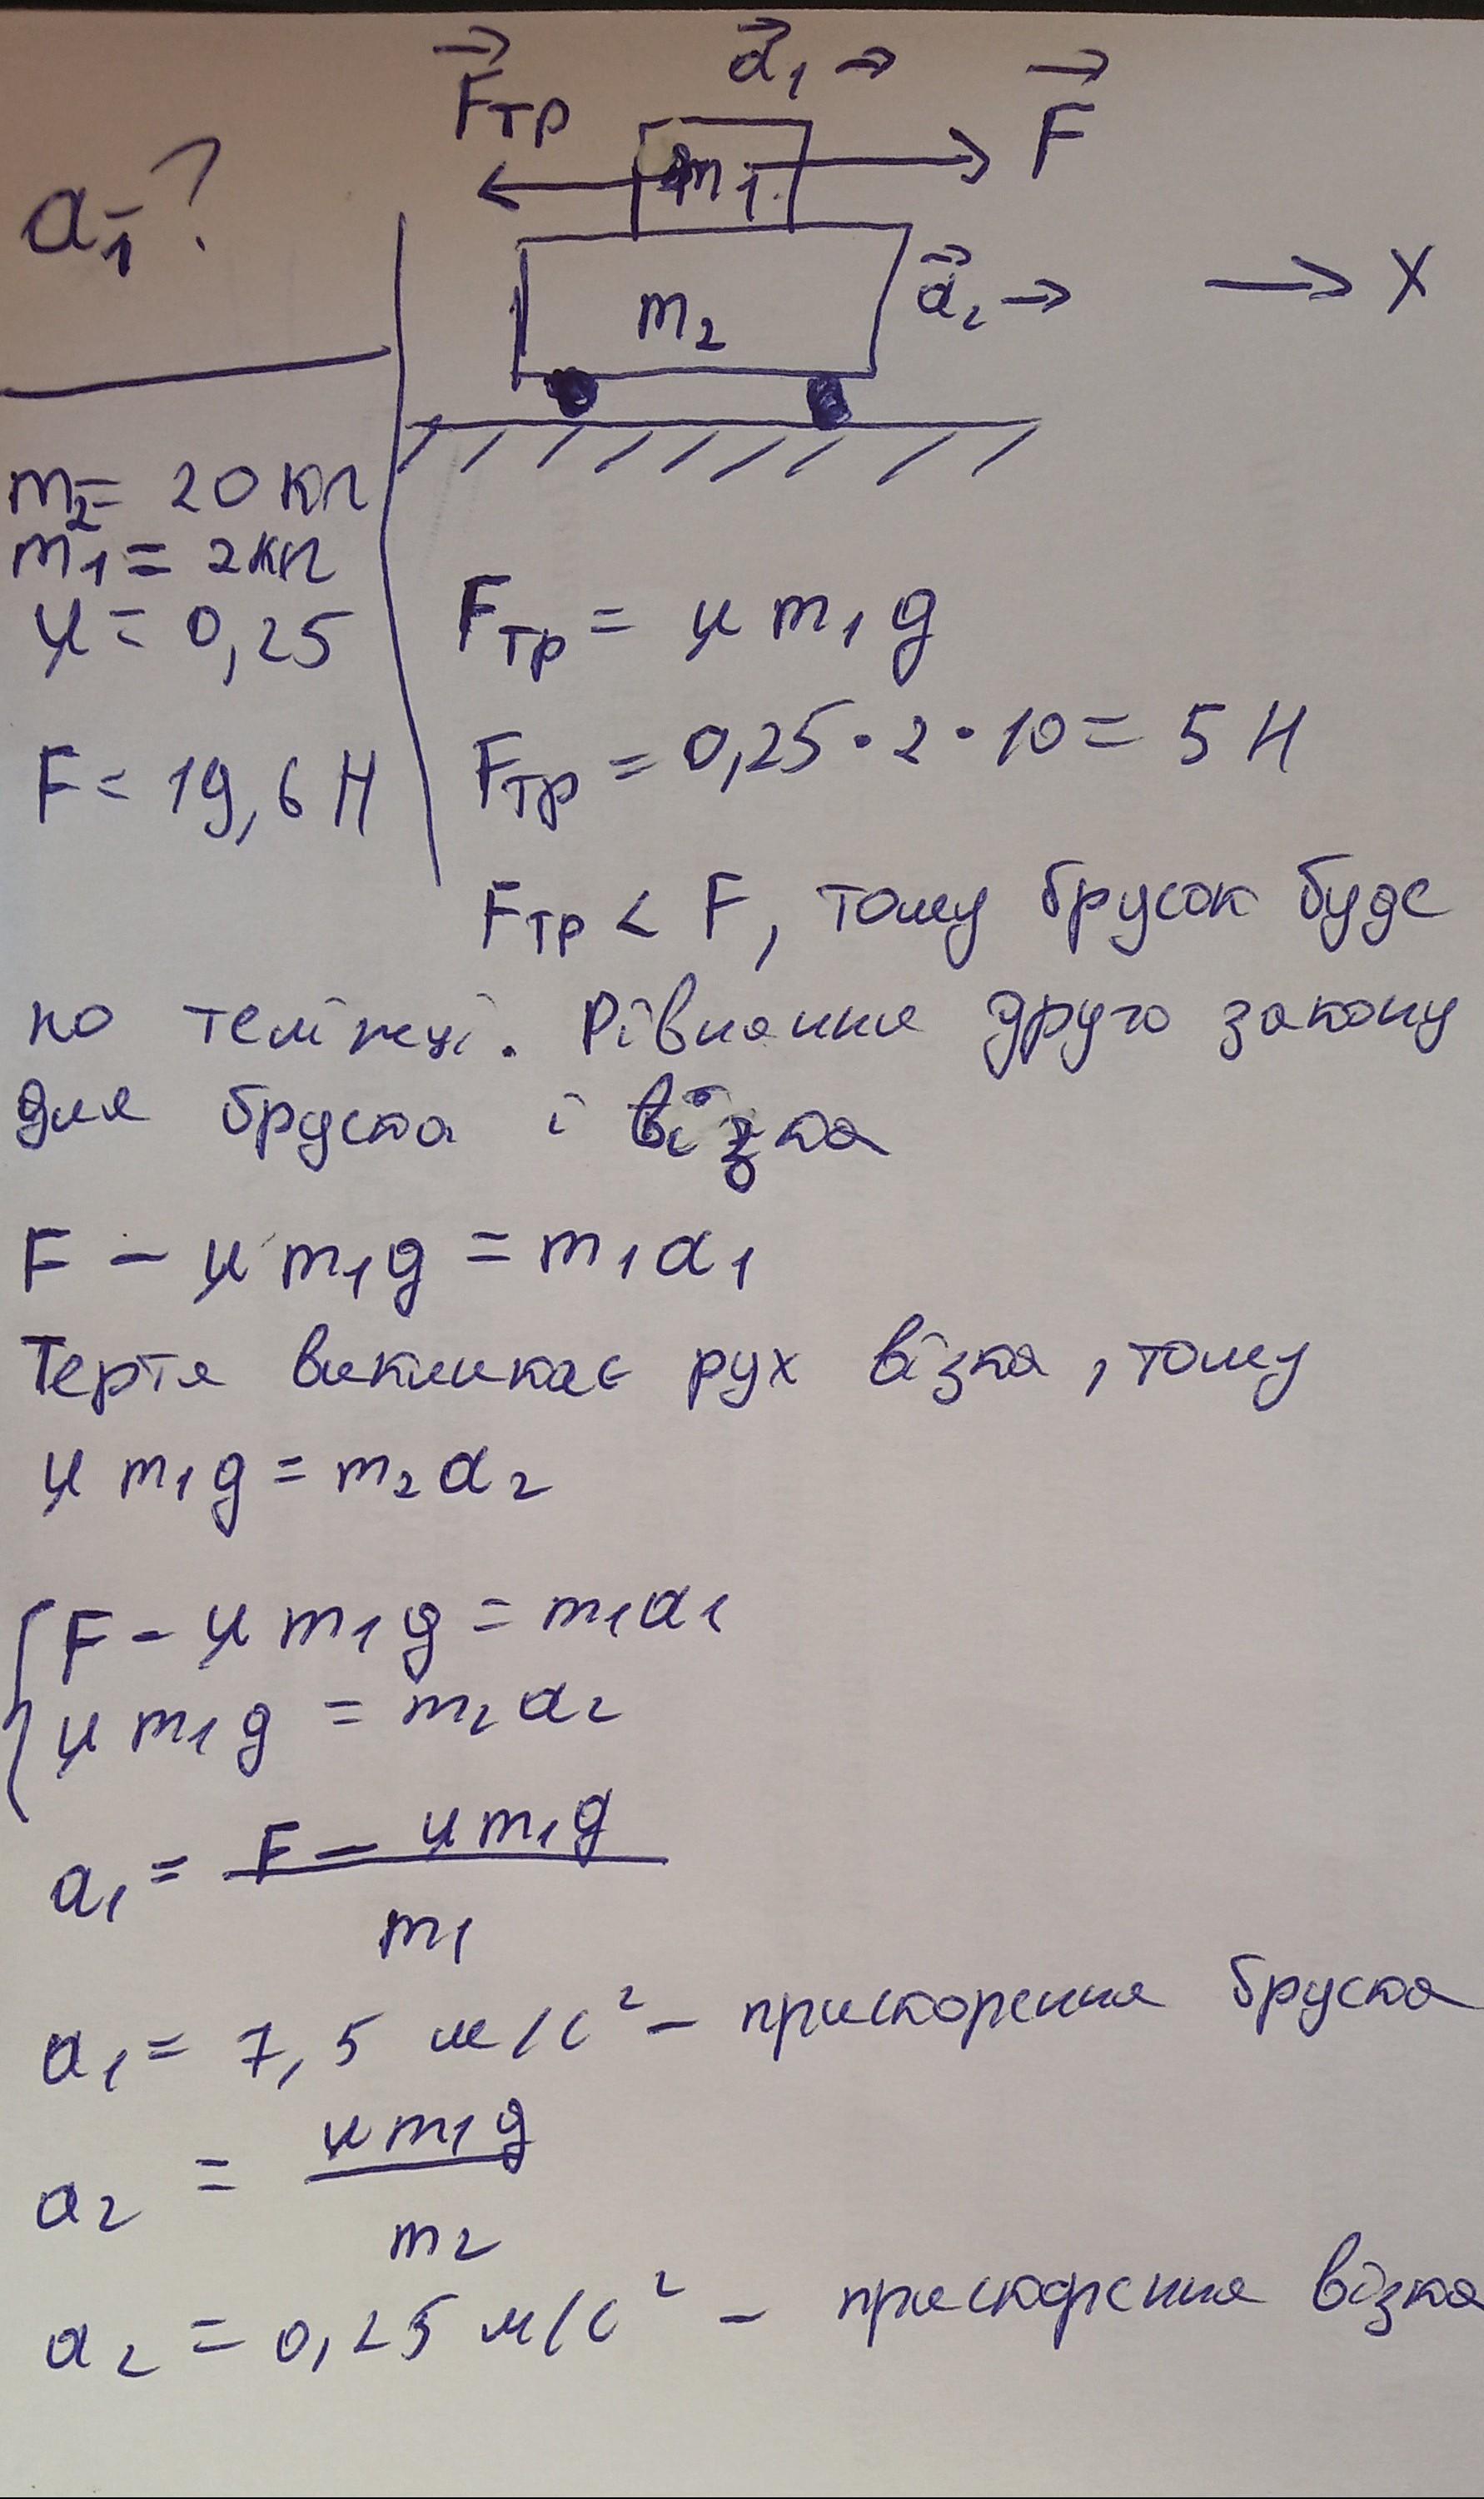 Fтр a₁ → F
a₁-?
m₁
m₂ a₂ → → X
m₂= 20 кг
m₁= 2кг
μ= 0,25
F= 19,6 Н
Fтр = μ m₁ g
Fтр = 0,25 · 2 · 10 = 5 Н
Fтр < F, тому брусок буде
по теліжці. Рівняння друго закону
для бруска і візка
F - μ m₁g = m₁a₁
Тертя викликає рух візка, тому
μ m₁g = m₂a₂
{ F - μ m₁g = m₁a₁
μ m₁g = m₂a₂
a₁ = F - μm₁g
m₁
a₁ = 7,5 м/с² - прискорення бруска
a₂ = μm₁g
m₂
a₂ = 0,25 м/с² - прискорення візка